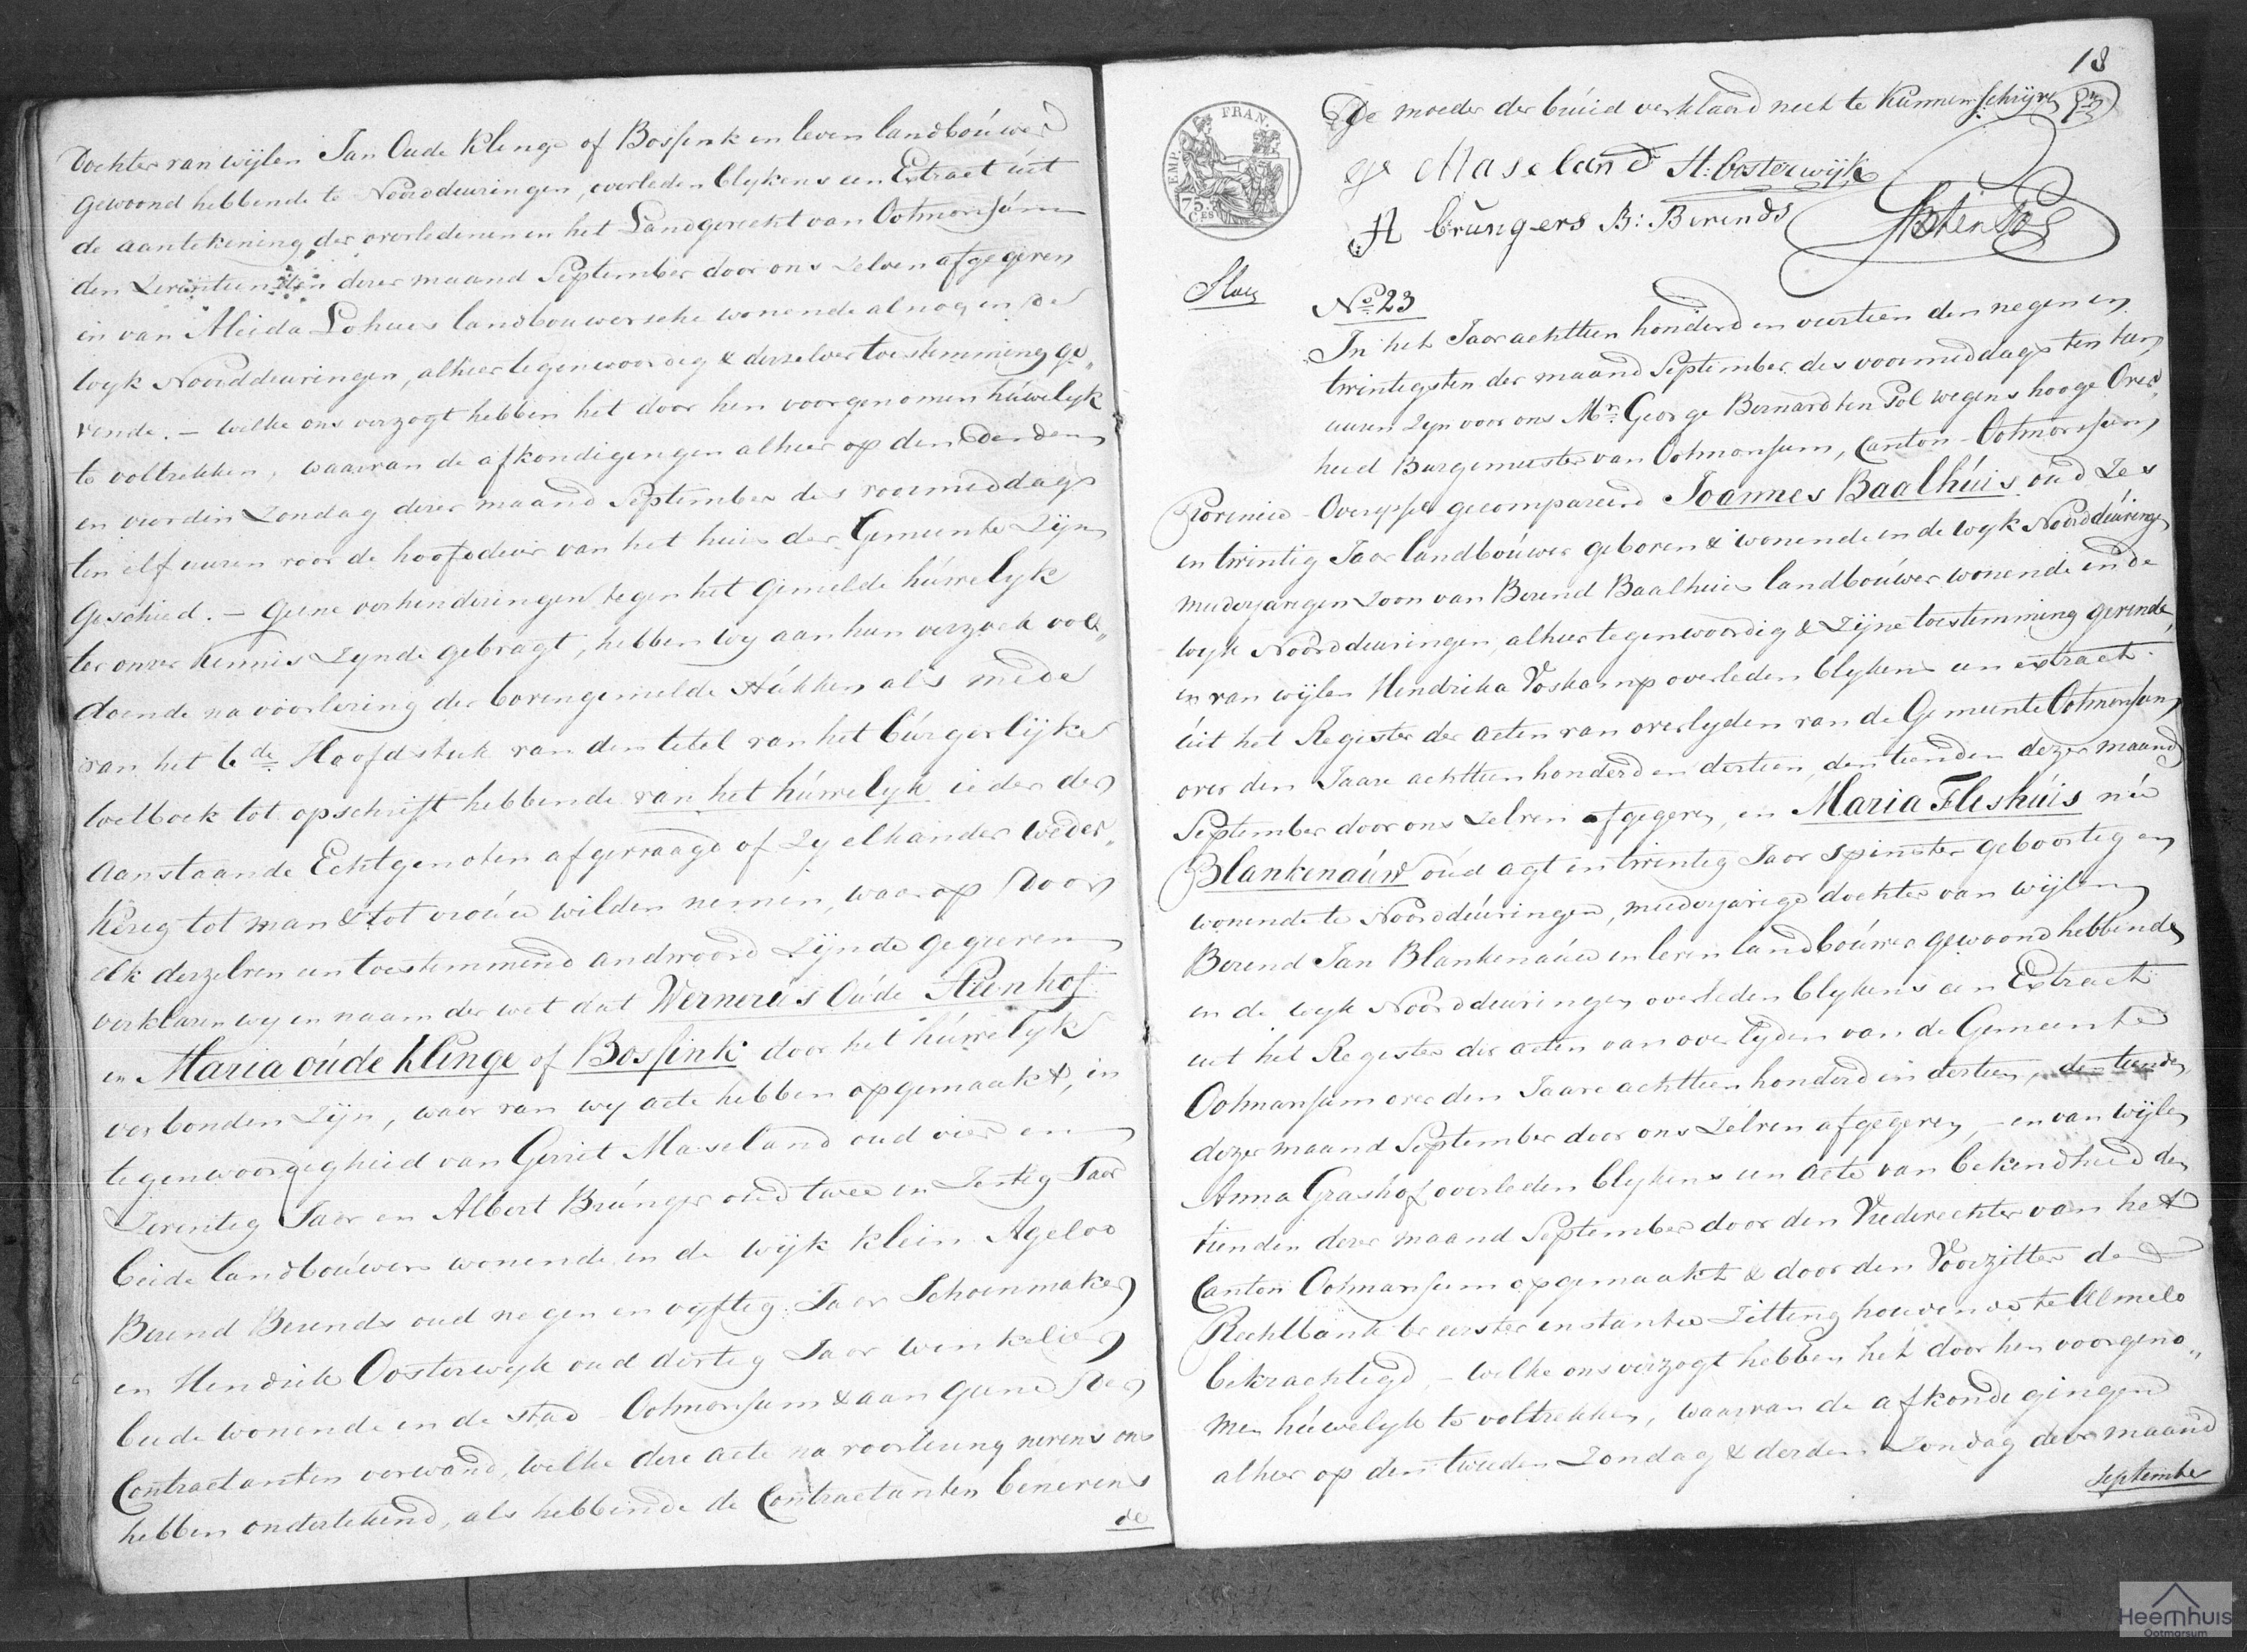 Dochter van wijlen Jan Oude Klenge of Bossink in leven landboúwer
gewoond hebbende te Noorddeuringen, overleden blykens een Extract uit
de aantekening der overledenen in het Landgerecht van Ootmarsúm
den zeventienden dezer maand September door ons zelven afgegeven
en van Aleida Lohues landbouwersche wonende al nog in de
wyk Noorddeuringen, alhier tegenwoordig & derzelver toestemming ge„
vende. – welke ons verzogt hebben het door hen voorgenomen húwelyk
te voltrekken, waarvan de afkondigingen alhier op den derden
en vierden Zondag dezer maand September des voormiddags
ten elf uuren voor de hoofddeur van het huis der Gemeente zijn
geschied. – Geene verhinderingen tegen het gemelde húwelyk
ter onzer kennis zynde gebragt, hebben wy aan hun verzoek vol„
doende na voorlezing der bovengemelde stúkken als mede
van het 6de Hoofdstuk van den titel van het búrgerlijke
wetboek tot opschrift hebbende van het húwelyk ieder der
aanstaande Echtgenoten afgevraagd of zy elkander weder„
kerig tot man & tot vroúw wilden nemen, waarop door
elk derzelven een toestemmend andwoord zijnde gegeven
verklaren wy in naam der wet dat Wernerús Oúde Steenhof
en Maria oúde Klinge of Bossink door het húwelyk
verbonden zijn, waar van wy acte hebben opgemaakt, in
tegenwoordigheid van Gerrit Maseland oud vier en
zeventig Jaar en Albert Brúnger oud twee en zestig Jaar
beide landboúwers wonende in de wijk klein Ageloo
Berend Berends oud negen en vyftig Jaar Schoenmaker
en Hendrik Oosterwyk oud dertig Jaar winkelier
beide wonende in de stad Ootmarsum & aan geene der
Contractanten verwand, welke deze acte na voorlezing nevens ons
hebben ondertekend, als hebbende de Contractanten benevens
de
18
De moeder der brúid verklaard niet te kunnen schryven
G Maseland H: Oosterwijk
A brúngers B: Berends
EMP. FRAN.
75 Ces
No 23
In het Jaar achttien honderd en veertien den negen en
twintigsten der maand September des voormiddags ten tien
uuren zyn voor ons Mr George Bernard ten Pol wegens hooge Over„
heid Burgemeester van Ootmarsum, Canton Ootmarsum
Provincie Overyssel gecompareerd Joannes Baalhúis oúd zes
en twintig Jaar landboúwer geboren & wonende in de wyk Noorddeúringen
meederjarigen zoon van Berend Baalhuis landboúwer wonende in de
wyk Noorddeuringen, alhier tegenwoordig & zijne toestemming gevende,
en van wijlen Hendrika Voskamp overleden blykens een extract
úit het Register der acten van overlyden van de Gemeente Ootmarsum
over den Jaare achttien honderd en dertien, den tienden dezer maand
September door ons zelven afgegeven, en Maria Fleshúis née
Blankenaúw oúd agt en twintig Jaar spinster geboortig en
wonende te Noorddeúringen, meederjarige dochter van wijlen
Berend Jan Blankenaúw in leven landboúwer gewoond hebbende
in de wyk Noorddeuringen overleden blykens een Extract
uit het Register der acten van overlyden van de Gemeente
Ootmarsum over den Jaare achttien honderd en dertien, den tienden
dezer maand September door ons zelven afgegeven, – en van wijlen
Anna Grashof overleden blykens een acte van bekendheid den
tienden dezer maand September door den Vrederechter van het
Canton Ootmarsum opgemaakt & door den Voorzitter de
Rechtbank ter eerster instantie zitting houdende te Almelo
bekrachtigd, – welke ons verzogt hebben het door hen voorgeno„
men húwelyk te voltrekken, waarvan de afkondigingen
alhier op den tweeden Zondag & derden Zondag dezer maand
September
Heemhuis
Ootmarsum